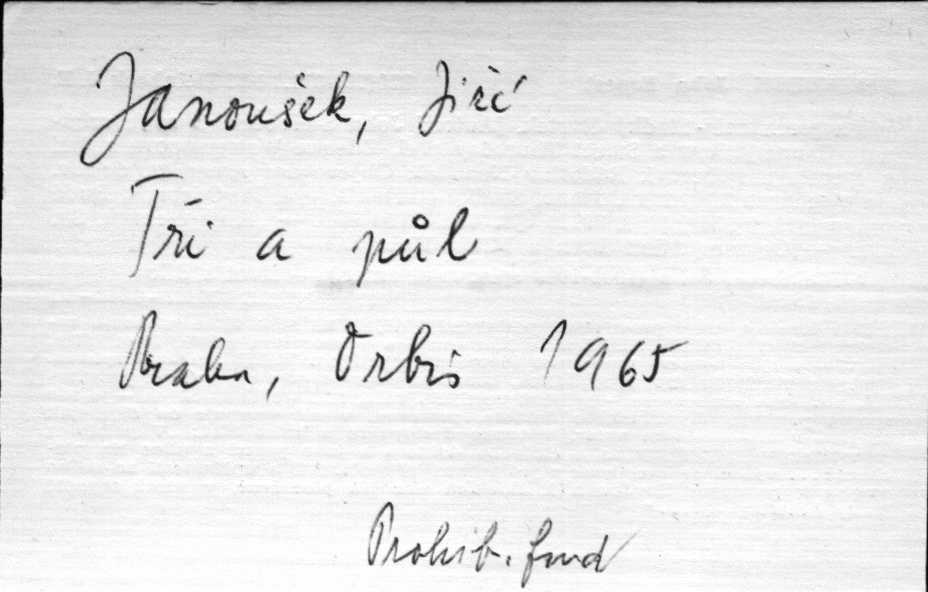 Janoušek, Jiří
Tři a půl
Praha, Orbis 1965
Prohib. fond